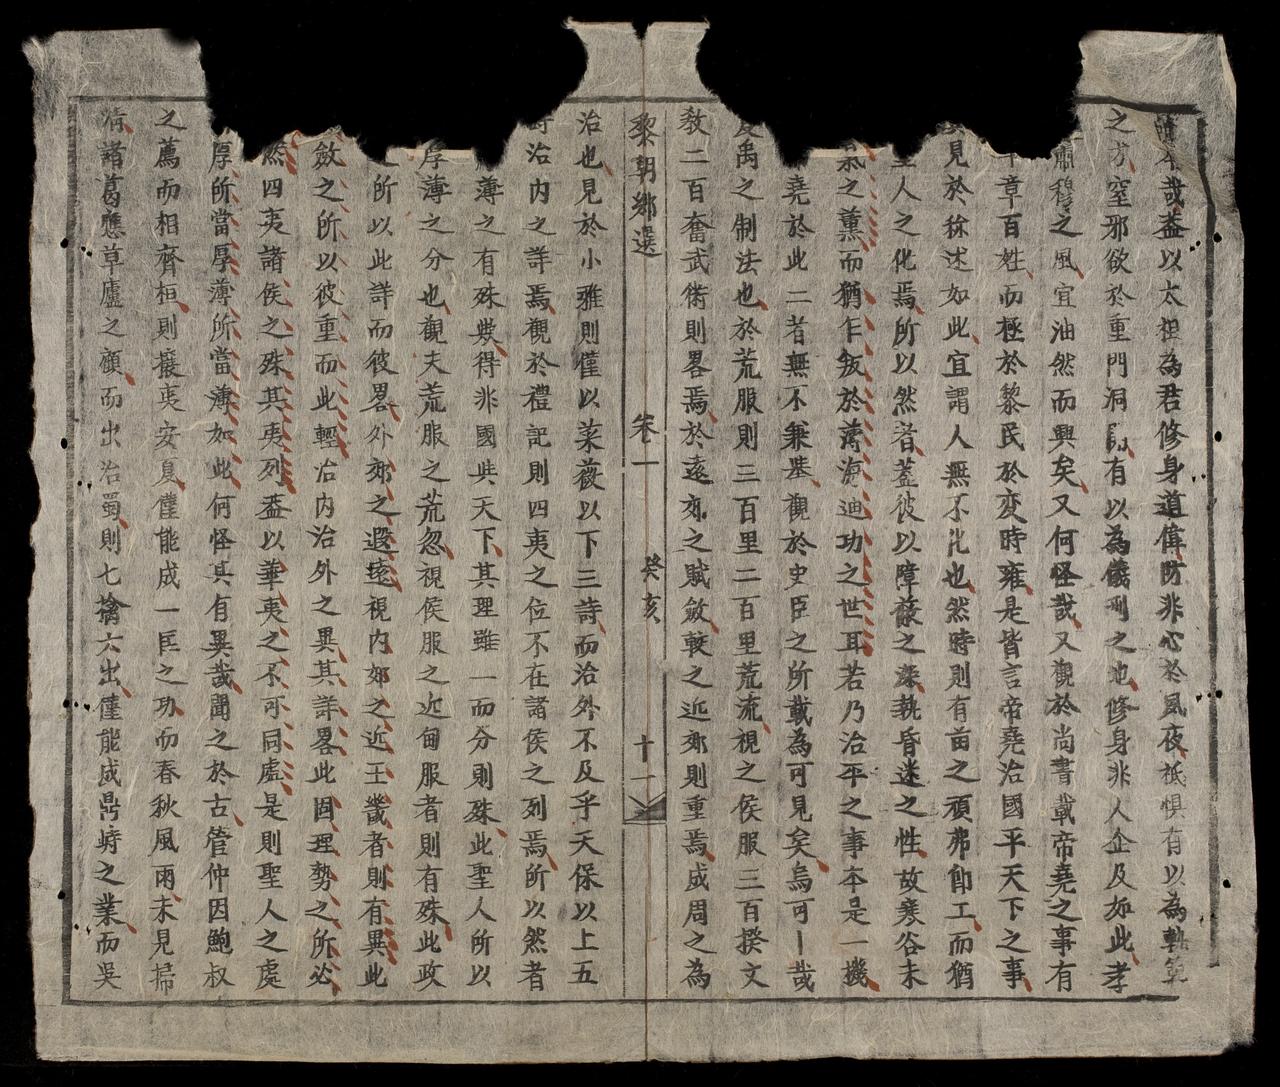 哉蓋以太祖為君修身道俻防非心於夙夜祗惧有以為執範
之方窒邪欲於重門洞闢有以為儀刑之也修身非人企及如此孝
肅穆之風宜油然而興矣又何怪哉又觀於尚書載帝堯之事有
章百姓而極於黎民於变時雍是皆言帝堯治國平天下之事
見於称述如此宜謂人無不化也然時則有苗之頑弗卽工而猶
人之化焉所以然者蓋彼以障蔽之深執昏迷之性故羑谷未
之薰而猶乍叛於薄海迪功之世耳若乃治平之事本是一機
堯於此二者無不兼基觀於史臣之所載為可見矣烏可一哉
禹之制法也於荒服則三百里二百里荒流視之侯服三百揆文
教二百奮武衛則畧焉於遠郊之賦斂較之近郊則重焉成周之為
黎朝鄉選 卷一 癸亥 十一
治也見於小雅則僅以菜薇以下三詩而治外不及乎天保以上五
治内之詳焉觀於禮記則四夷之位不在諸侯之列焉所以然者
薄之有殊欤得非國与天下其理雖一而分則殊此聖人所以
厚薄之分也觀夫荒服之荒忽視侯服之近甸服者則有殊此政
所以此詳而彼畧外郊之遐遠視内郊之近王畿者則有異此
斂之所以彼重而此輕治内治外之異其詳畧此固理勢之所必
然四夷諸侯之殊其夷列蓋以華夷之不可同處是則聖人之處
厚所當厚薄所當薄如此何怪其有異哉聞之於古管仲因鮑叔
之薦而相齊桓則攘夷安夏僅能成一匡之功而春秋風雨未見掃
清諸葛應草廬之顧而出治蜀則七擒六出僅能成鼎峙之業而吳